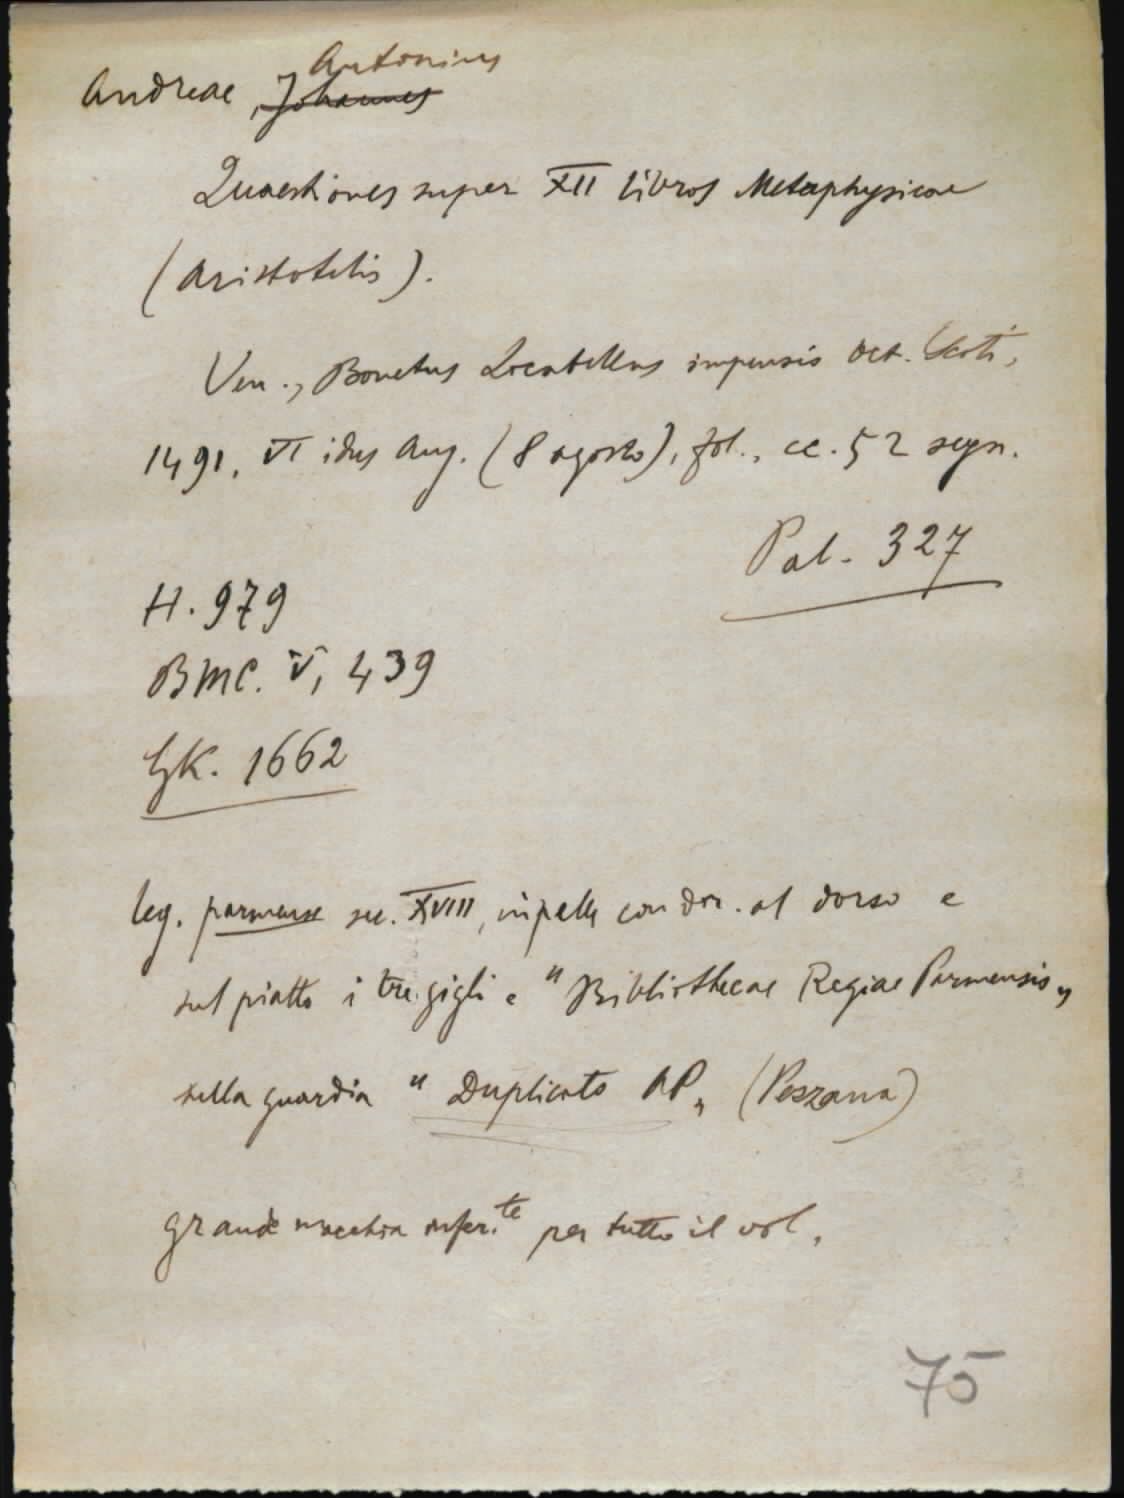 Andreae, Johannes Antonius
Quaestiones super XII libros Metaphysicae
(Aristotelis).
Ven., Bonetus Locatellus impensis Oct. Scoti,
1491, VI idus Aug. (8 agosto), fol., cc. 52 segn.
Pal. 327
H. 979
BMC. V, 439
GK. 1662
leg. parmense sec. XVIII, in pelle con dor. al dorso e
sul piatto i tre gigli e "Bibliothecae Regiae Parmensis„
sulla guardia "Duplicato AP„ (Pezzana)
grande macchia infer.te per tutto il vol.
75